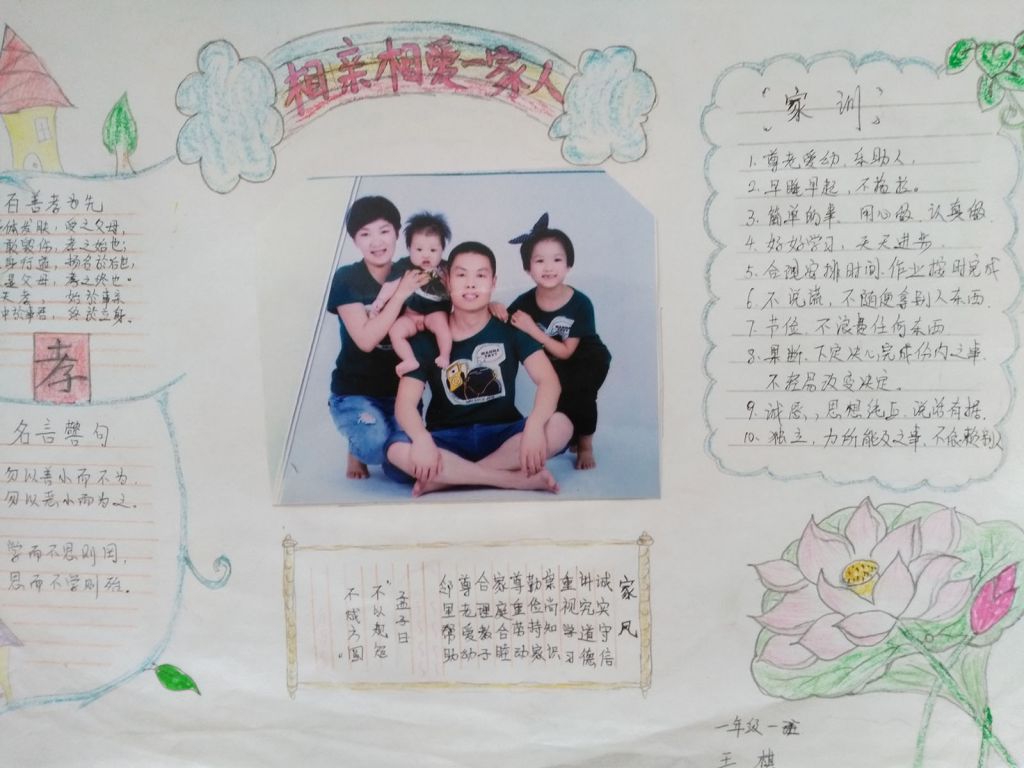 相亲相爱一家人
百善孝为先
体发肤，受之父母，
敢毁伤，孝之始也；
身行道，扬名於后世，
显父母，孝之终也。
夫孝，始於事亲
中於事君，终於立身。
孝
名言警句
勿以善小而不为，
勿以恶小而为之。
学而不思则罔，
思而不学则殆。
「家训」
1. 尊老爱幼，乐助人，
2. 早睡早起，不拖拉。
3. 简单的事 用心做 认真做
4. 好好学习，天天进步
5. 合理安排时间 作业按时完成
6. 不说谎，不随便拿别人东西
7. 节俭，不浪费任何东西
8. 果断，下定决心完成份内之事
不轻易改变决定。
9. 诚恳，思想纯正，说话有据
10. 独立，力所能及之事，不依赖别人
家风
诚实守信
讲究道德
重视学习
崇尚知识
勤俭持家
尊重劳动
家庭合睦
合理教子
尊老爱幼
邻里帮助
孟子曰
"不以规矩
不成方圆"
一年级一班
王棋